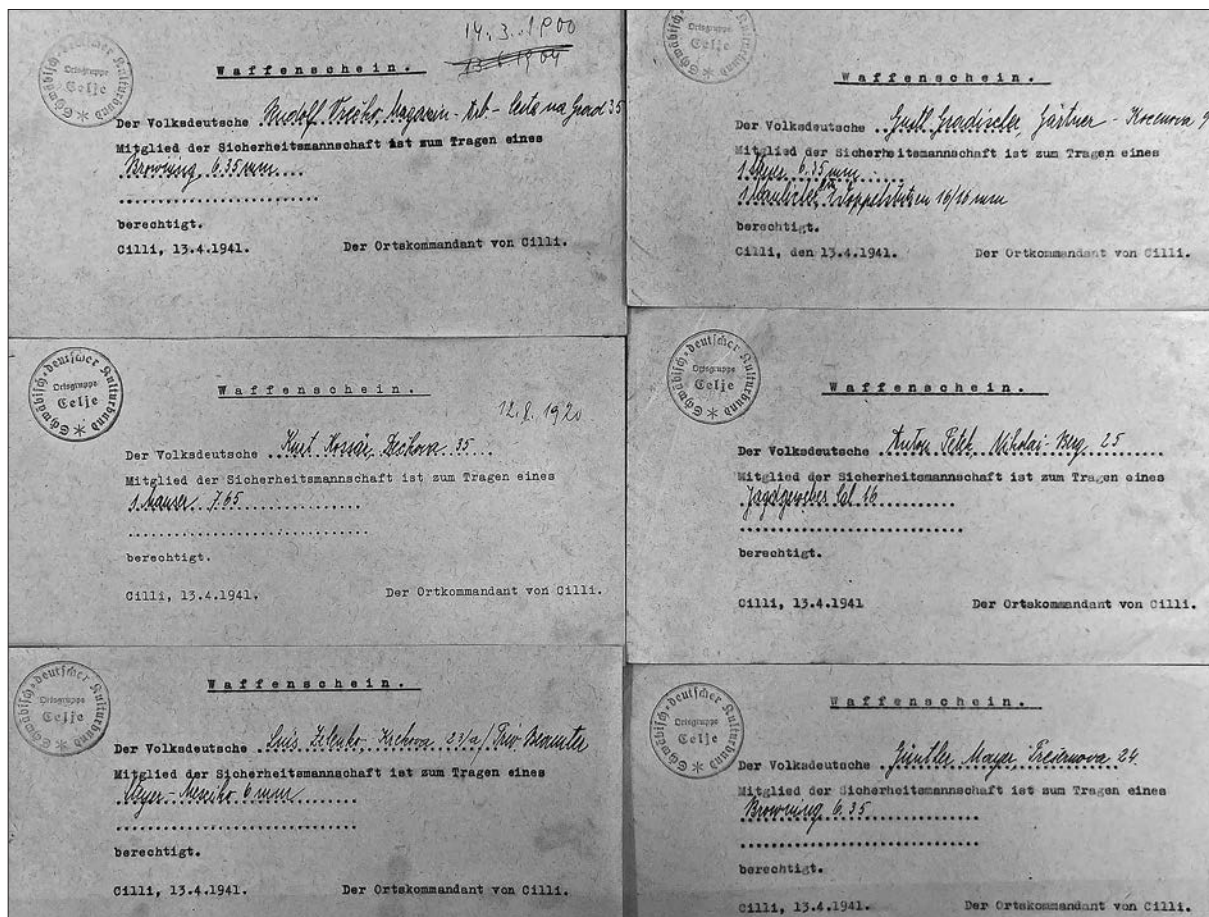 14.3.1900
13.6.1904
Schwäbisch-deutscher Kulturbund
Ortsgruppe
Celje
Waffenschein.
Der Volksdeutsche Rudolf Magazin-Arb- Cesta na Grad 35
Mitglied der Sicherheitsmannschaft ist zum Tragen eines
Browning 6.35 mm
berechtigt.
Cilli, 13.4.1941. Der Ortskommandant von Cilli.
Schwäbisch-deutscher Kulturbund
Ortsgruppe
Celje
Waffenschein.
12.8.1920
Der Volksdeutsche Kurt 35
Mitglied der Sicherheitsmannschaft ist zum Tragen eines
1 Mauser 7.65
berechtigt.
Cilli, 13.4.1941. Der Ortkommandant von Cilli.
Schwäbisch-deutscher Kulturbund
Ortsgruppe
Celje
Waffenschein.
Der Volksdeutsche Luis Zelenko 23/a/ Priv Beamter
Mitglied der Sicherheitsmannschaft ist zum Tragen eines
6 mm
berechtigt.
Cilli, 13.4.1941. Der Ortskommandant von Cilli.
Ortsgruppe
Celje
Kulturbund
Waffenschein.
Der Volksdeutsche Gustl Gradischer, Gärtner - 9
Mitglied der Sicherheitsmannschaft ist zum Tragen eines
1 6.35 mm
16/16 mm
berechtigt.
Cilli, den 13.4.1941. Der Ortkommandant von Cilli.
Schwäbisch-deutscher Kulturbund
Ortsgruppe
Celje
Waffenschein.
Der Volksdeutsche Anton Petek Nikolai-Berg 25
Mitglied der Sicherheitsmannschaft ist zum Tragen eines
Cal 16
berechtigt.
Cilli, 13.4.1941 Der Ortskommandant von Cilli.
Schwäbisch-deutscher Kulturbund
Ortsgruppe
Celje
Waffenschein.
Der Volksdeutsche Günther Mayer, 24
Mitglied der Sicherheitsmannschaft ist zum Tragen eines
Browning 6.35
berechtigt.
Cilli, 13.4.1941. Der Ortskommandant von Cilli.